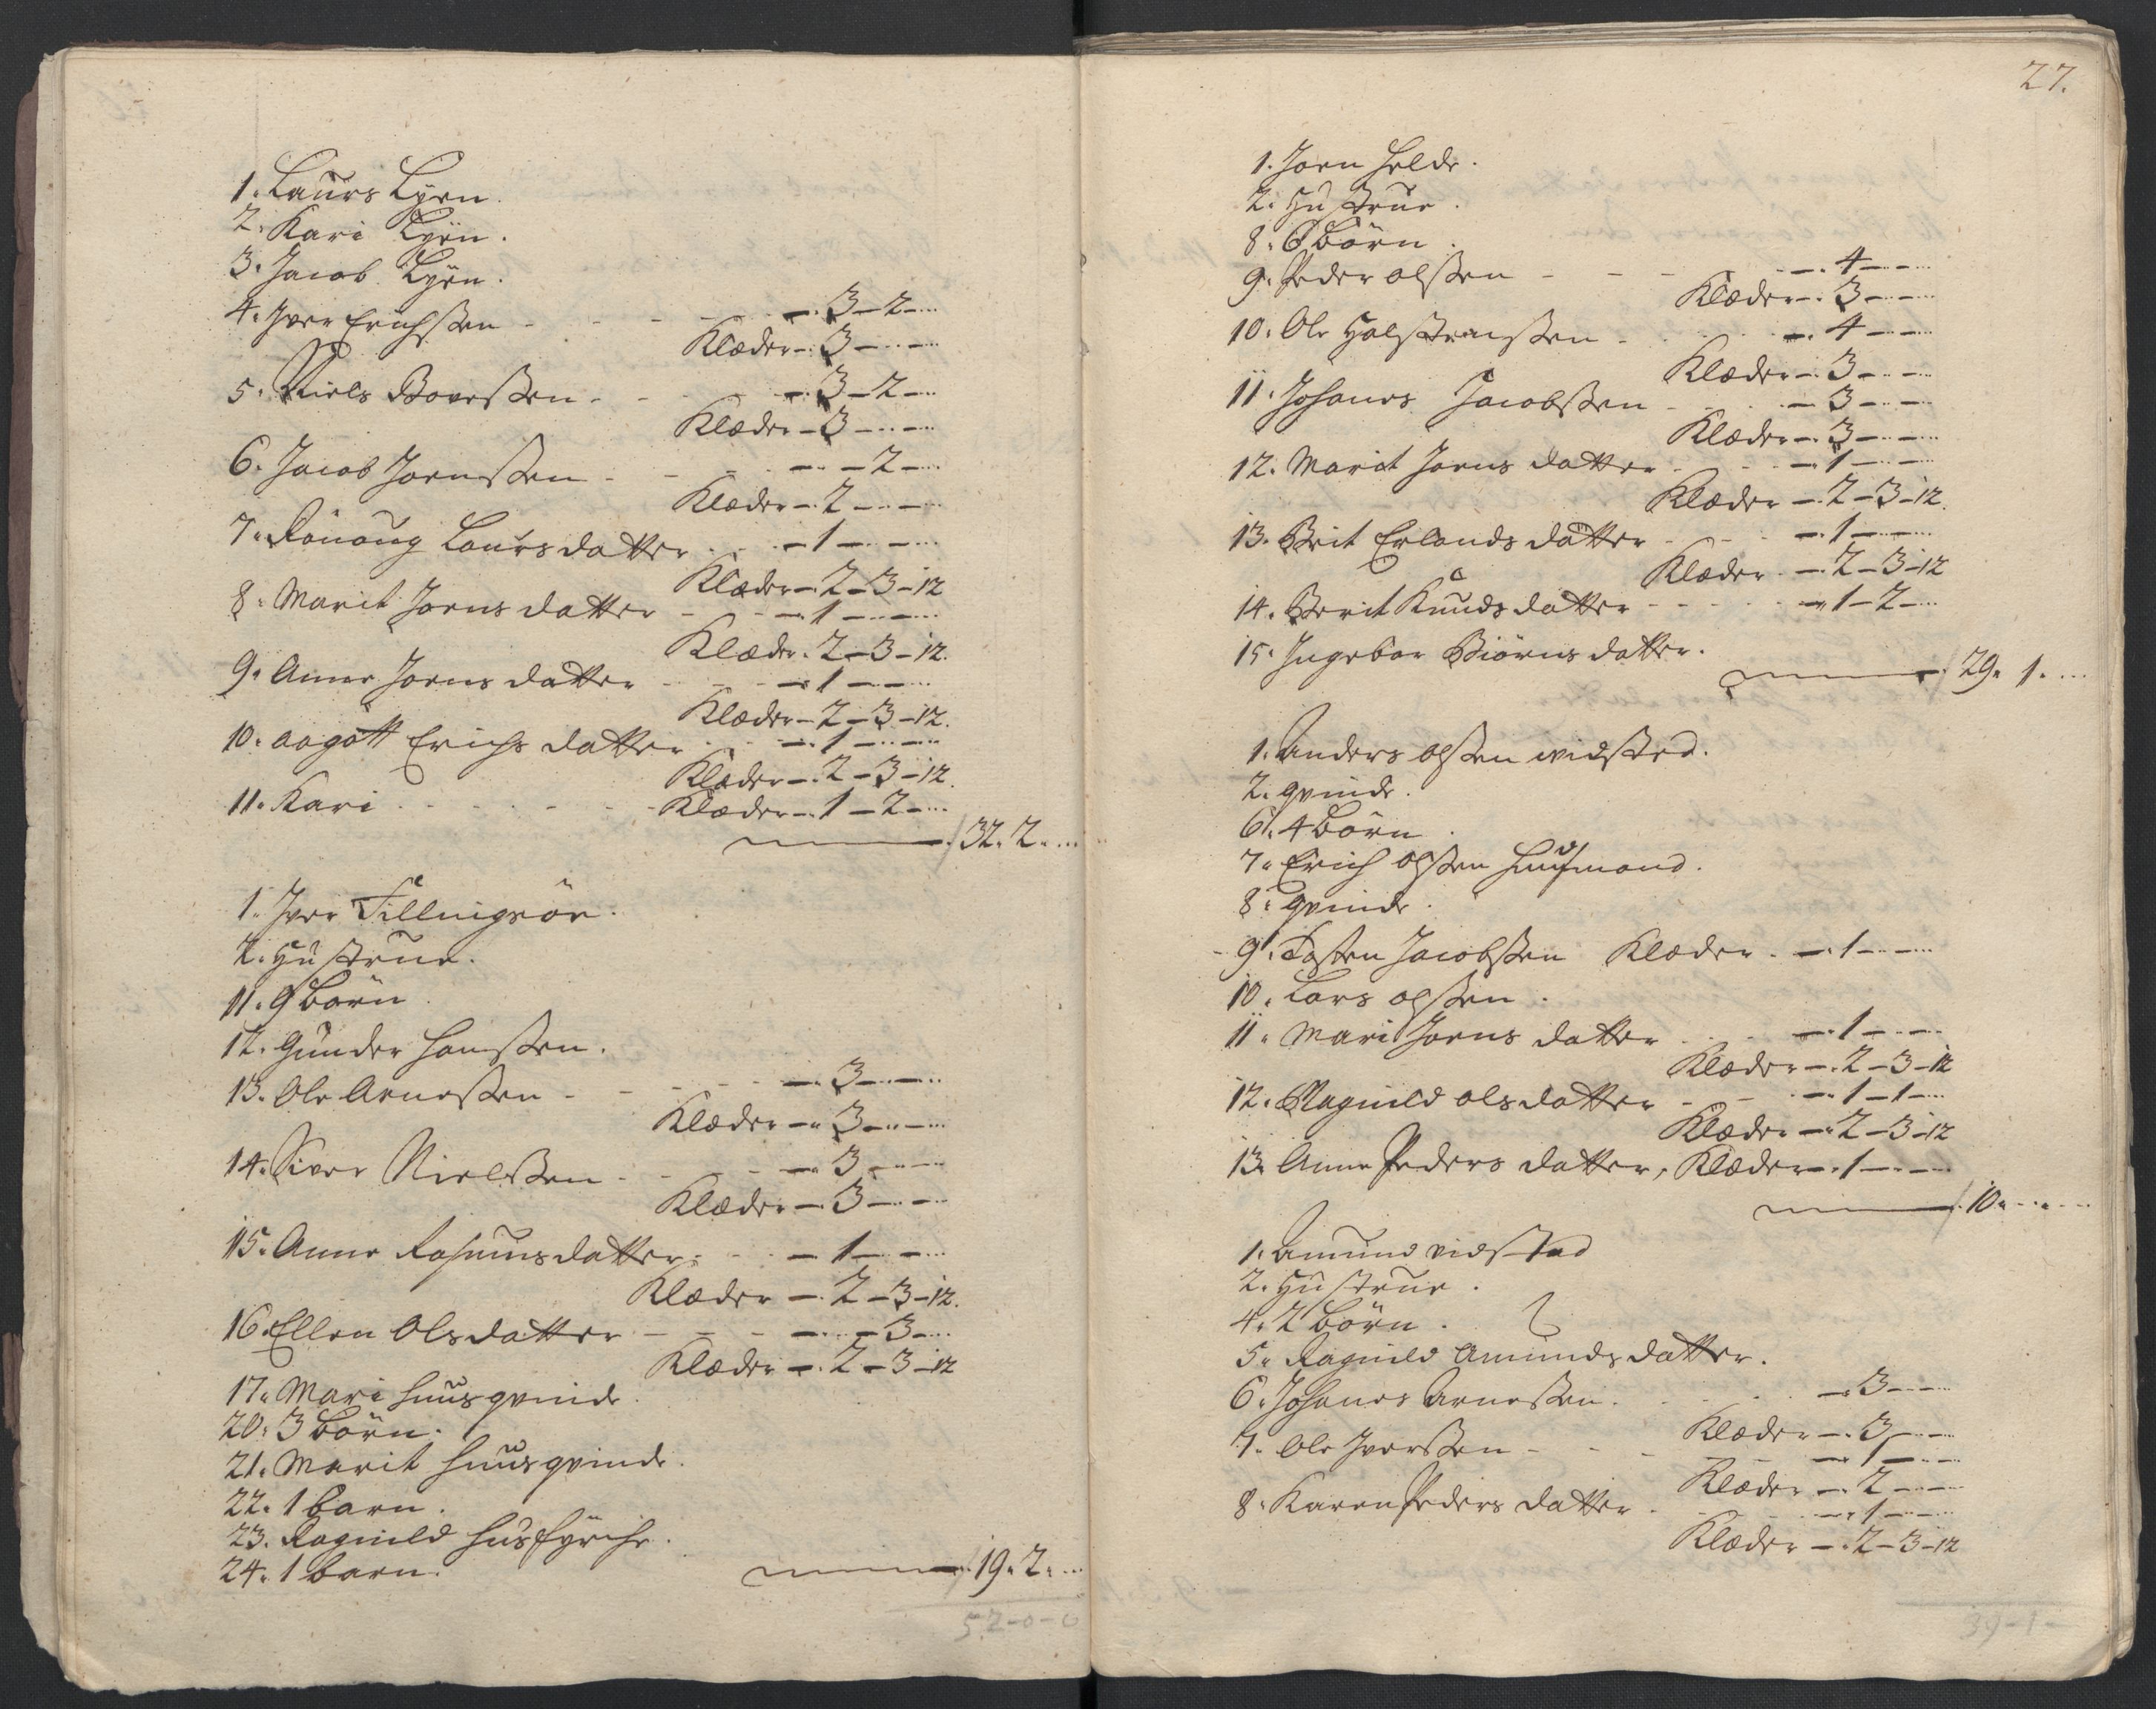 1. Laurs Lyen.
2. Kari Lyen.
3. Jacob Lyen.
4. Iver Erichssen - - - 3 - 2 -
Klæder - 3 - -
5. Niels Bovessen - - 3 - 2 -
Klæder - 3 - -
6. Jacob Joenssen - - - 2 -
Klæder - 2 - -
7. Rønoug Laursdatter - 1 - -
Klæder - 2 - 3 - 12
8. Marit Joens datter - - 1 - -
Klæder. 2 - 3 - 12.
9. Anne Joens datter - - 1 - -
Klæder - 2 - 3 - 12.
10. aagott Erichs datter - 1 - -
Klæder - 2 - 3 - 12.
11. Kari - - - Klæder - 1 - 2 -
32. 2.
1. Iver
2. Hustrue.
11. 9 Børn.
12. Gunder Hanssen.
13. Ole Arnessen - - - 3 - -
Klæder - 3 - -
14. Siver Nielssen - - 3 - -
Klæder - 3 - -
15. Anne datter - - 1 - -
Klæder - 2 - 3 - 12.
16. Ellen Olsdatter - - - 3 -
Klæder - 2 - 3 - 12
17. Mari Huusqvinde.
20. 3 Børn.
21. Marit Huusqvinde.
22. 1 barn.
23. Ragnild
24. 1 barn.
19. 2.
52-0-0
27.
1. Joen Helde.
2. Hustrue.
8. 6 Børn.
9. Peder olssen - - - 4 - -
Klæder - 3 - -
10. Ole Halstenssen - - 4 - -
Klæder - 3 - -
11. Johanes Jacobssen - - 3 - -
Klæder - 3 - -
12. Marit Joens datter - - 1 - -
Klæder - 2 - 3 - 12.
13. Brit Erlands datter - - 1 - -
Klæder - 2 - 3 - 12
14. Berit Knuds datter - - - 1 - 2 -
15. Ingebor Biørns datter.
29. 1.
1. Anders olssen widsted.
2. qvinde.
6. 4 Børn.
7. Erich olssen Huusmand.
8. qvinde.
9. Tosten Jacobssen Klæder. - 1 - -
10. Lars olssen.
11. Marit Joens datter - 1 - -
Klæder - 2 - 3 - 12
12. Ragnild olsdatter - - 1 - 1 -
Klæder - 2 - 3 - 12
13. Anne Peders datter, Klæder - 1 - -
10.
1. Amund vidsted
2. Hustrue.
4. 2 Børn.
5. Ragnild Amunds datter.
6. Johanes Arnessen - - 3 - -
Klæder - 3 - -
7. Ole Iverssen - - - 1 - -
Klæder - 2 - -
8. Karen Peders datter - - 1 - -
Klæder - 2 - 3 - 12
39-1-